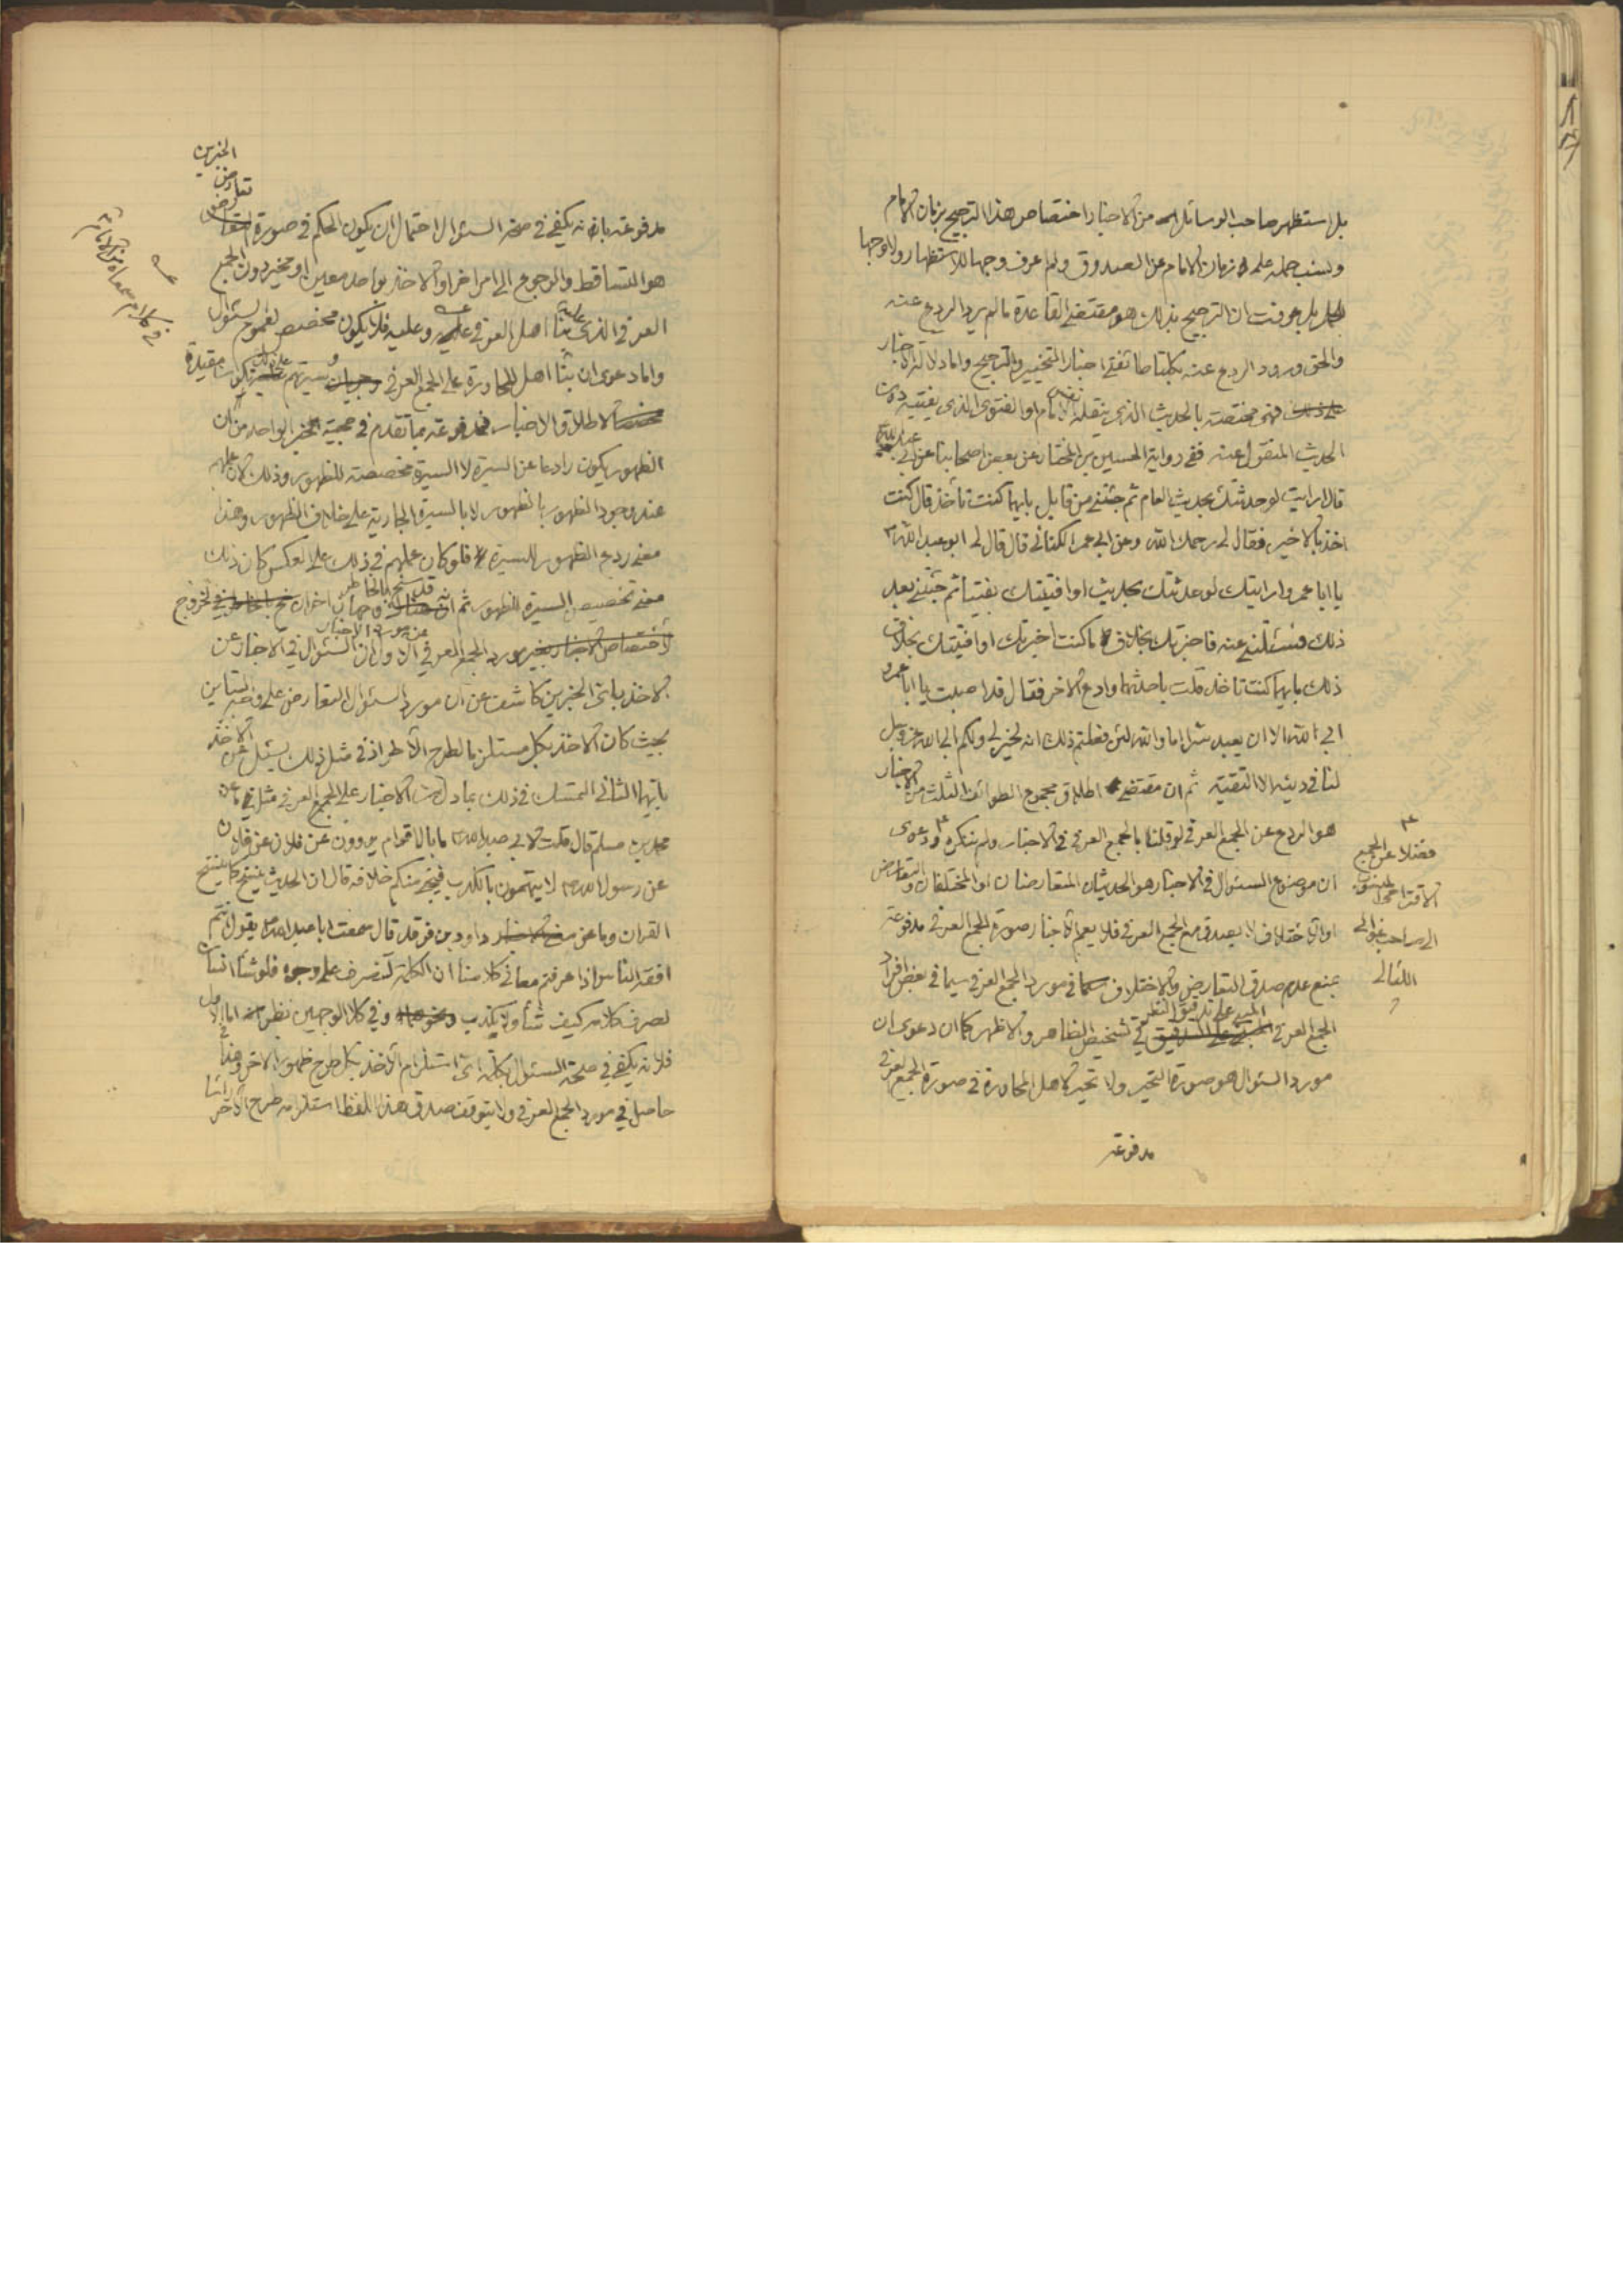 بل استظهر صاحب الوسائل من الاخبار اختصاص هذا الترجيح بزمان الامام
ونسب حمله على زمان الامام عن الصدوق ولم اعرف وجها للاستظهار ولا وجها
بل عرفت ان الترجيح بذلك هو مقتضى القاعدة ما لم يرد الردع عنه
والحق ورود الردع عنه بكلتا طائفتي اخبار التخيير والترجيح واما دلالة الاخبار
على ذلك فهي مختصة بالحديث الذي ينقله الامام او الفتوى الذي يفتيه دون
الحديث المنقول عنه ففي رواية الحسين بن المختار عن بعض اصحابنا عن ابي عبد الله
قال ارايت لو حدثتك بحديث العام ثم جئتني من قابل بايهما كنت تأخذ قال كنت
اخذ بالاخير فقال لي رحمك الله وعن ابي عمر الكناني قال قال لي ابو عبد الله
يا ابا عمرو ارايتك لو حدثتك بحديث او افتيتك بفتيا ثم جئتني بعد
ذلك فتسئلني عنه فاخبرتك بخلاف ما كنت اخبرتك او افتيتك بخلاف
ذلك بايهما كنت تاخذ قلت باحدثهما وادع الاخر فقال قد اصبت يا ابا عمرو
ابى الله الا ان يعبد سرا اما والله لئن فعلتم ذلك انه لخير لي ولكم ابى الله عز وجل
لنا في دينه الا التقية ثم ان مقتضى اطلاق مجموع الطوائف الثلث من الاخبار
هو الردع عن الجمع العرفي لو قلنا بالجمع العرفي في الاخبار ولم ننكره ودعوى
فضلا عن الجمع
الى صاحب غوالي
اللئالي
ان موضوع السئوال في الاخبار هو الحديثان المتعارضان او المختلفان والتعارض
او الاختلاف لا يصدق مع الجمع العرفي فلا يعم الاخبار صورة الجمع العرفي مدفوعة
بمنع عدم صدق التعارض والاختلاف في مورد الجمع العرفي سيما في بعض افراد
الجمع العرفي المبني على تدقيق النظر في تشخيص الظاهر والاظهر كما ان دعوى ان
مورد السئوال هو صورة التحير ولا تحير لاهل المحاورة في صورة الجمع العرفي
مدفوعة
مدفوعة بانه يكفي في صحة السئوال احتمال ان يكون الحكم في صورة تعارض الخبرين
هو التساقط والرجوع الى امر اخر او الاخذ بواحد معين او مخير دون الجمع
العرفي الذي عليه بناء اهل العرف وعليه فلا يكون مخصص لعموم السئوال
واما دعوى ان بناء اهل المحاورة على الجمع العرفي وسيرتهم على ذلك تكون مقيدة
لاطلاق الاخبار فمدفوعة بما تقدم في حجية الخبر الواحد من ان
الظهور يكون رادعا عن السيرة لا السيرة مخصصة للظهور وذلك لان عملهم
عند وجود الظهور بالظهور لا بالسيرة الجارية على خلاف الظهور وهذا
معنى ردع الظهور للسيرة فلو كان عملهم في ذلك على العكس كان ذلك
معنى تخصيص السيرة للظهور ثم انه قد سنح بالخاطر وجهان اخران لخروج
مورد الجمع العرفي عن مورد الاخبار الاول ان السئوال في الاخبار عن
الاخذ باي الخبرين كاشف عن ان مورد السئوال التعارض على وجه التباين
بحيث كان الاخذ بكل مستلزما لطرح الاخر اذ في مثل ذلك يسئل عن الاخذ
بايهما الثاني التمسك في ذلك بما دل من الاخبار على الجمع العرفي مثل ما عن
محمد بن مسلم قال قلت لابي عبد الله ما بال اقوام يروون عن فلان عن فلان
عن رسول الله لا يتهمون بالكذب فيجئ منكم خلافه قال ان الحديث ينسخ كما ينسخ
القران وما عن داود بن فرقد قال سمعت ابا عبد الله يقول انتم
افقه الناس اذا عرفتم معاني كلامنا ان الكلمة لتنصرف على وجوه فلو شاء انسان
لصرف كلامه كيف شاء ولا يكذب وفي كلا الوجهين نظر اما الاول
فلانه يكفي في صحة السئوال بكلمة اي استلزام الاخذ بكل طرح ظهور الاخر وهذا
حاصل في مورد الجمع العرفي ولا يتوقف صدق هذا اللفظ استلزامه طرح الاخر